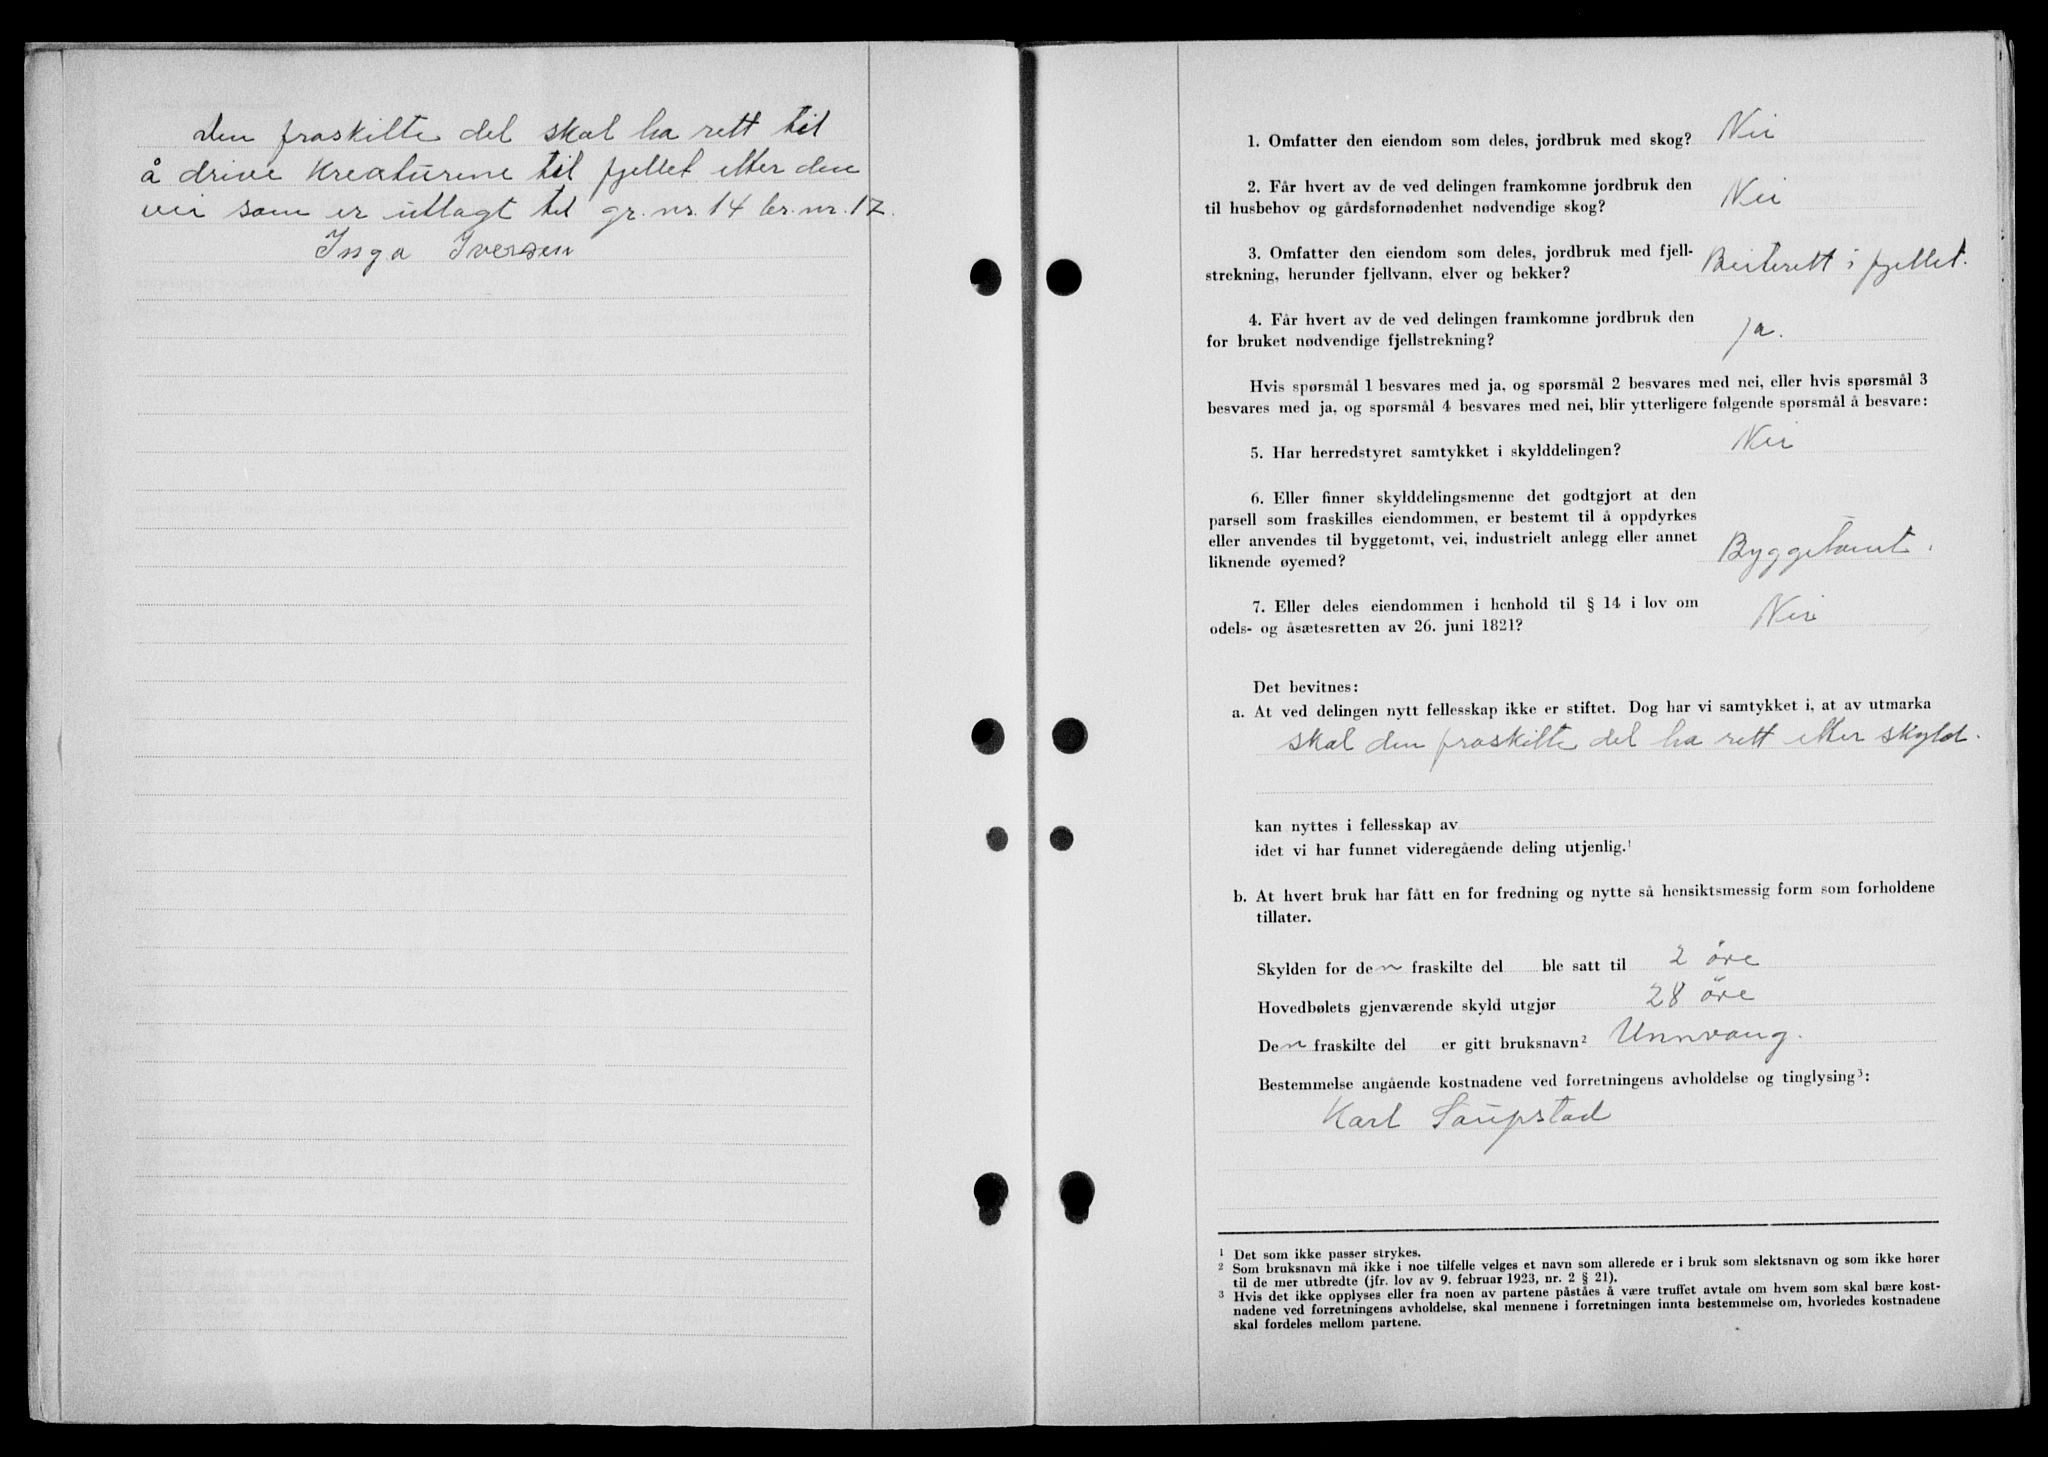 Den fraskilte del skal ha rett til
å drive kreaturene til fjellet etter den
vei som er utlagt til gr. nr. 14 br. nr. 12.
Inga Iversen
1. Omfatter den eiendom som deles, jordbruk med skog? Nei
2. Får hvert av de ved delingen framkomne jordbruk den
til husbehov og gårdsfornødenhet nødvendige skog? Nei
3. Omfatter den eiendom som deles, jordbruk med fjell-
strekning, herunder fjellvann, elver og bekker? Beiterett i fjellet.
4. Får hvert av de ved delingen framkomne jordbruk den
for bruket nødvendige fjellstrekning? Ja.
Hvis spørsmål 1 besvares med ja, og spørsmål 2 besvares med nei, eller hvis spørsmål 3
besvares med ja, og spørsmål 4 besvares med nei, blir ytterligere følgende spørsmål å besvare:
5. Har herredstyret samtykket i skylddelingen? Nei
6. Eller finner skylddelingsmenne det godtgjort at den
parsell som fraskilles eiendommen, er bestemt til å oppdyrkes
eller anvendes til byggetomt, vei, industrielt anlegg eller annet
liknende øyemed? Byggetomt.
7. Eller deles eiendommen i henhold til § 14 i lov om
odels- og åsætesretten av 26. juni 1821? Nei
Det bevitnes:
a. At ved delingen nytt fellesskap ikke er stiftet. Dog har vi samtykket i, at av utmarka
skal den fraskilte del ha rett etter skyld.
kan nyttes i fellesskap av
idet vi har funnet videregående deling utjenlig.¹
b. At hvert bruk har fått en for fredning og nytte så hensiktsmessig form som forholdene
tillater.
Skylden for den fraskilte del ble satt til 2 öre
Hovedbølets gjenværende skyld utgjør 28 öre
Den fraskilte del er gitt bruksnavn² Unnvang.
Bestemmelse angående kostnadene ved forretningens avholdelse og tinglysing³:
Karl Saupstad
¹ Det som ikke passer strykes.
² Som bruksnavn må ikke i noe tilfelle velges et navn som allerede er i bruk som slektsnavn og som ikke hører
til de mer utbredte (jfr. lov av 9. februar 1923, nr. 2 § 21).
³ Hvis det ikke opplyses eller fra noen av partene påståes å være truffet avtale om hvem som skal bære kost-
nadene ved forretningens avholdelse, skal mennene i forretningen innta bestemmelse om, hvorledes kostnadene
skal fordeles mellom partene.